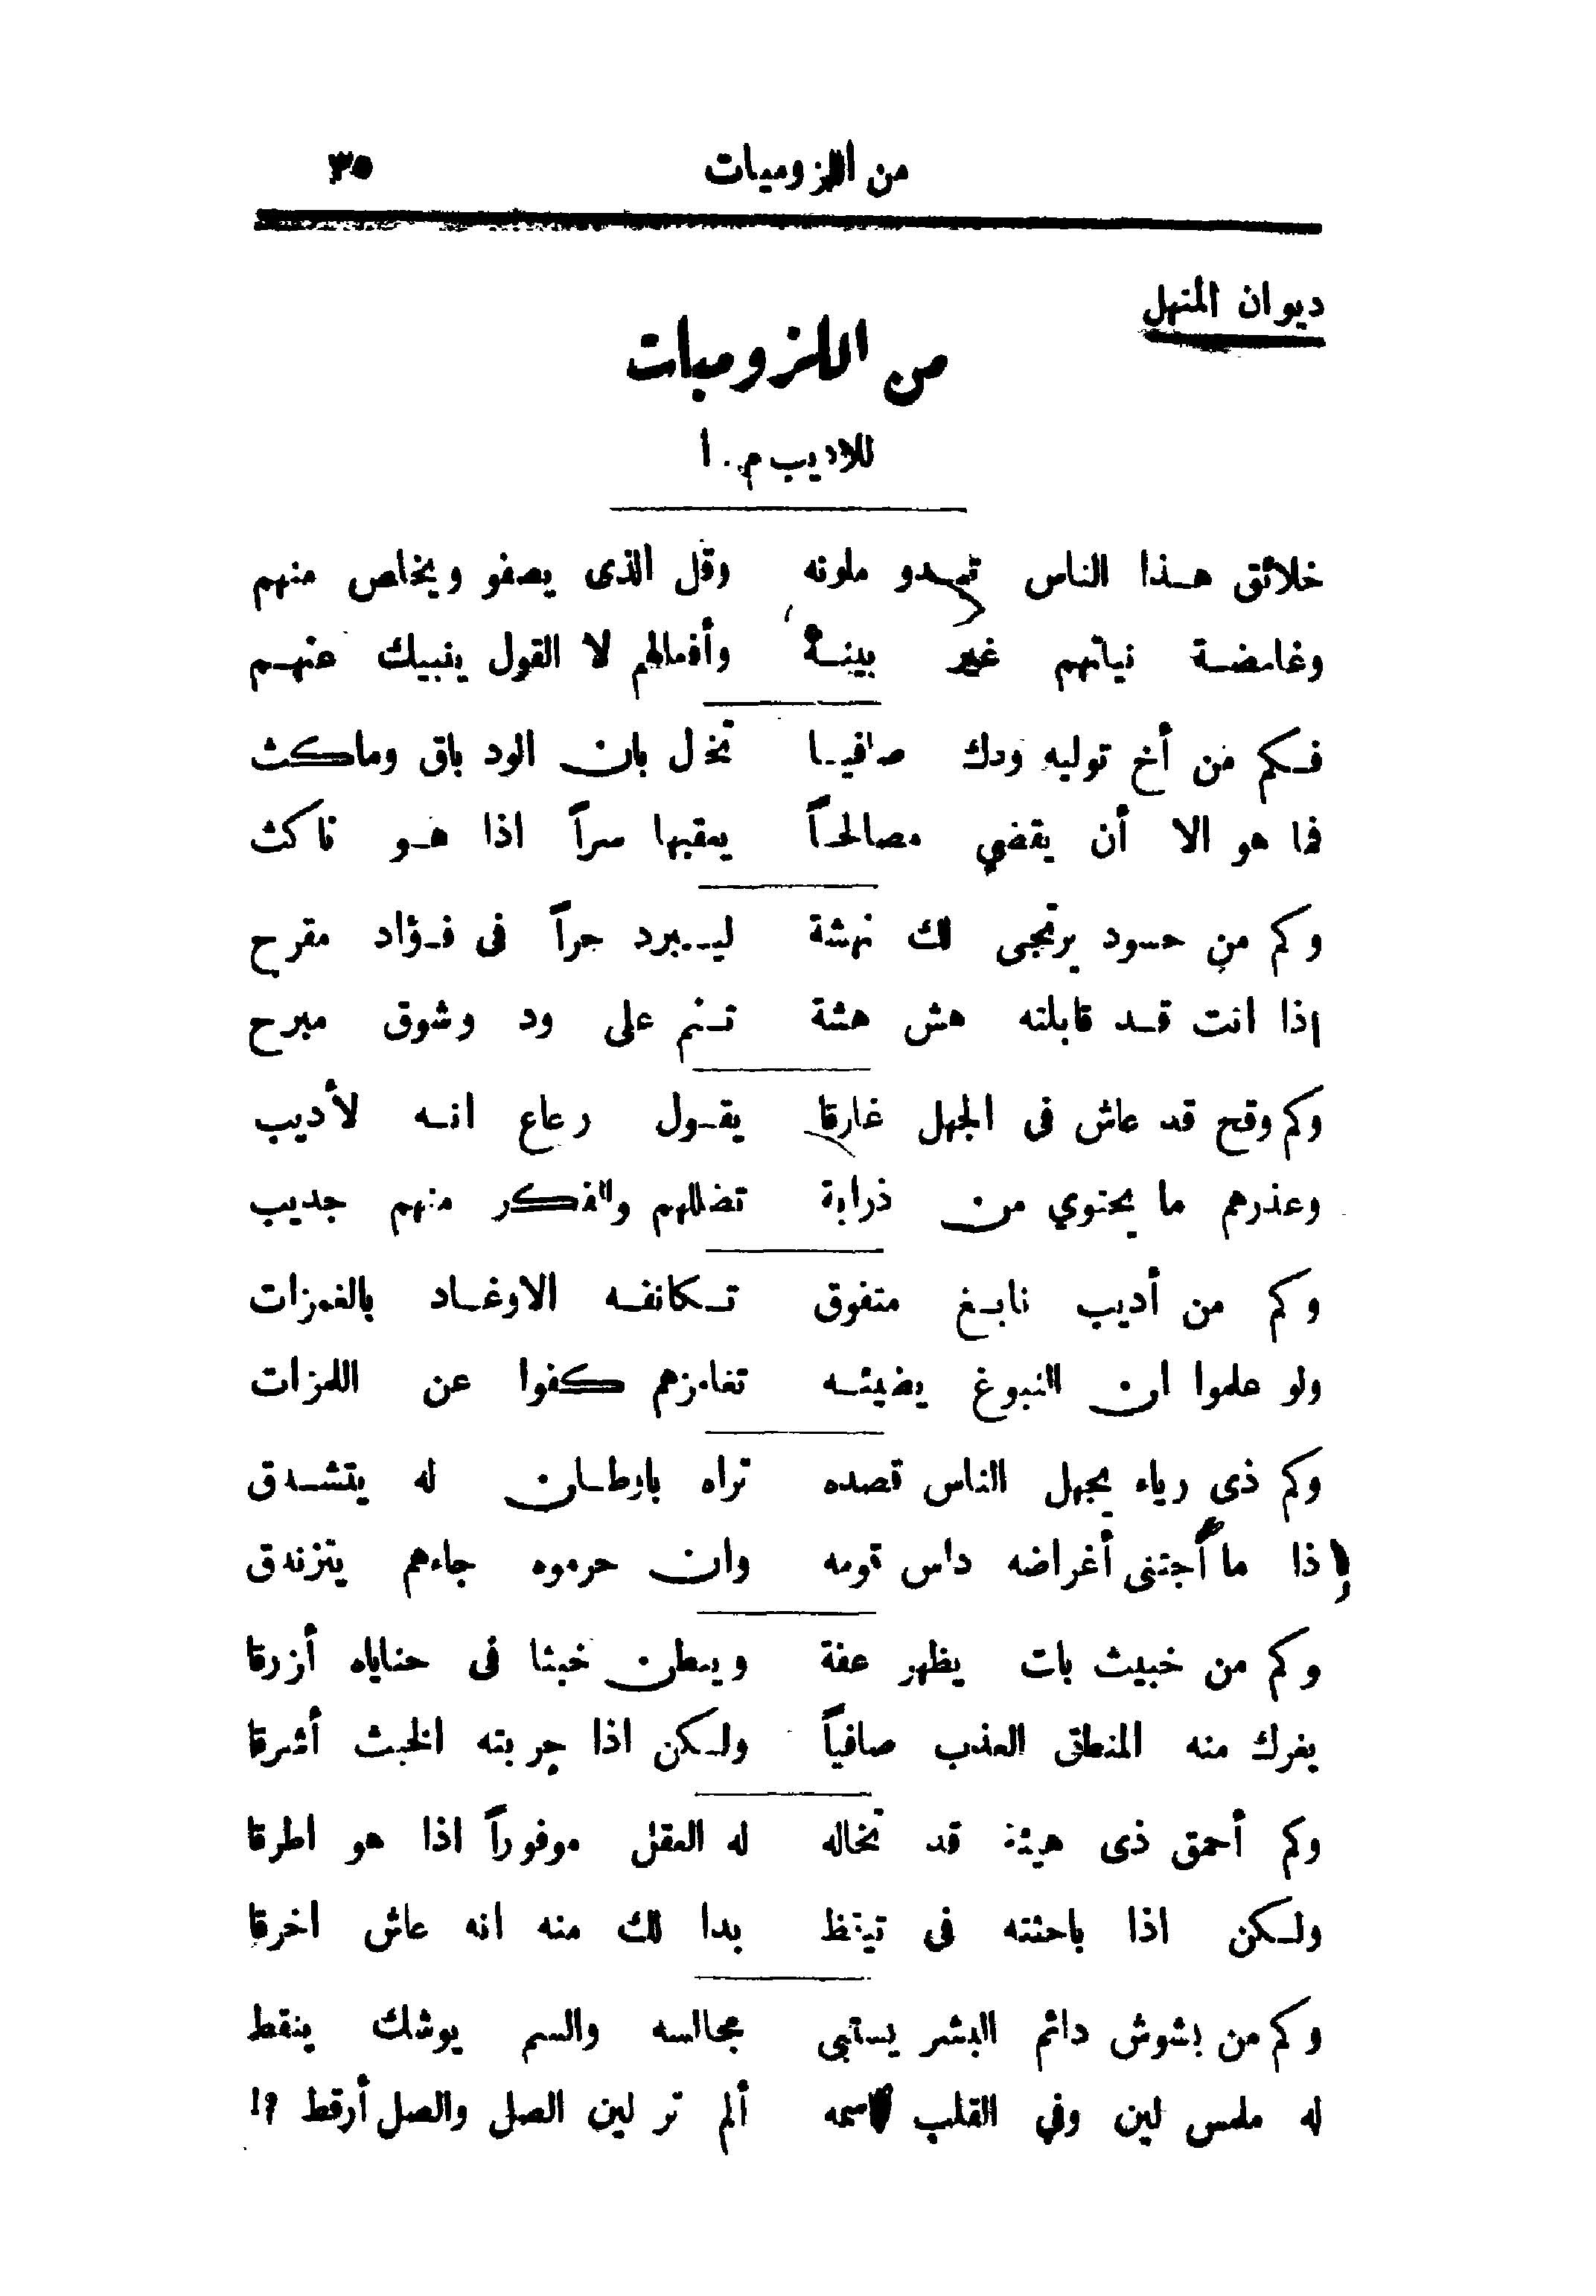 من اللزوميات ٣٥
ديوان المنهل
من اللزوميات
للاديب م. ا
خلائق هذا الناس تبدو ملونه وقل الذى يصفو ويخلص منهم
وغامضة نياتهم غير بينة وأفعالهم لا القول ينبيك عنهم
فكم من أخ توليه ودك صافيا تخال بان الود باق وماكث
فما هو الا أن يقضي مصالحاً يعقبها سراً اذا هو ناكث
وكم من حسود يرتجى لك نهشة ليبرد حراً فى فؤاد مقرح
إذا انت قد قابلته هش هشة تنم على ود وشوق مبرح
وكم وقح قد عاش فى الجهل غارقا يقول رعاع انه لأديب
وعذرهم ما يحتوي من ذرابة تضللهم والفكر منهم جديب
وكم من أديب نابغ متفوق تكانفه الاوغاد بالغمزات
ولو علموا ان النبوغ يضيئه تغامزهم كفوا عن اللمزات
وكم ذى رياء يجهل الناس قصده تراه باوطان له يتشدق
إذا ما أجتنى أغراضه داس قومه وان حرموه جاءهم يتزندق
وكم من خبيث بات يظهر عفة ويبطن خبثا فى حناياه أزرقا
يغرك منه المنطق العذب صافياً ولكن اذا جربته الخبث أشرقا
وكم أحمق ذى هيئة قد تخاله له العقل موفوراً اذا هو اطرقا
ولكن اذا باحثته فى تيقظ بدا لك منه انه عاش اخرقا
وكم من بشوش دائم البشر يستبى مجالسه والسم يوشك ينقط
له ملمس لين وفي القلب سمه ألم تر لين الصل والصل أرقط ؟!